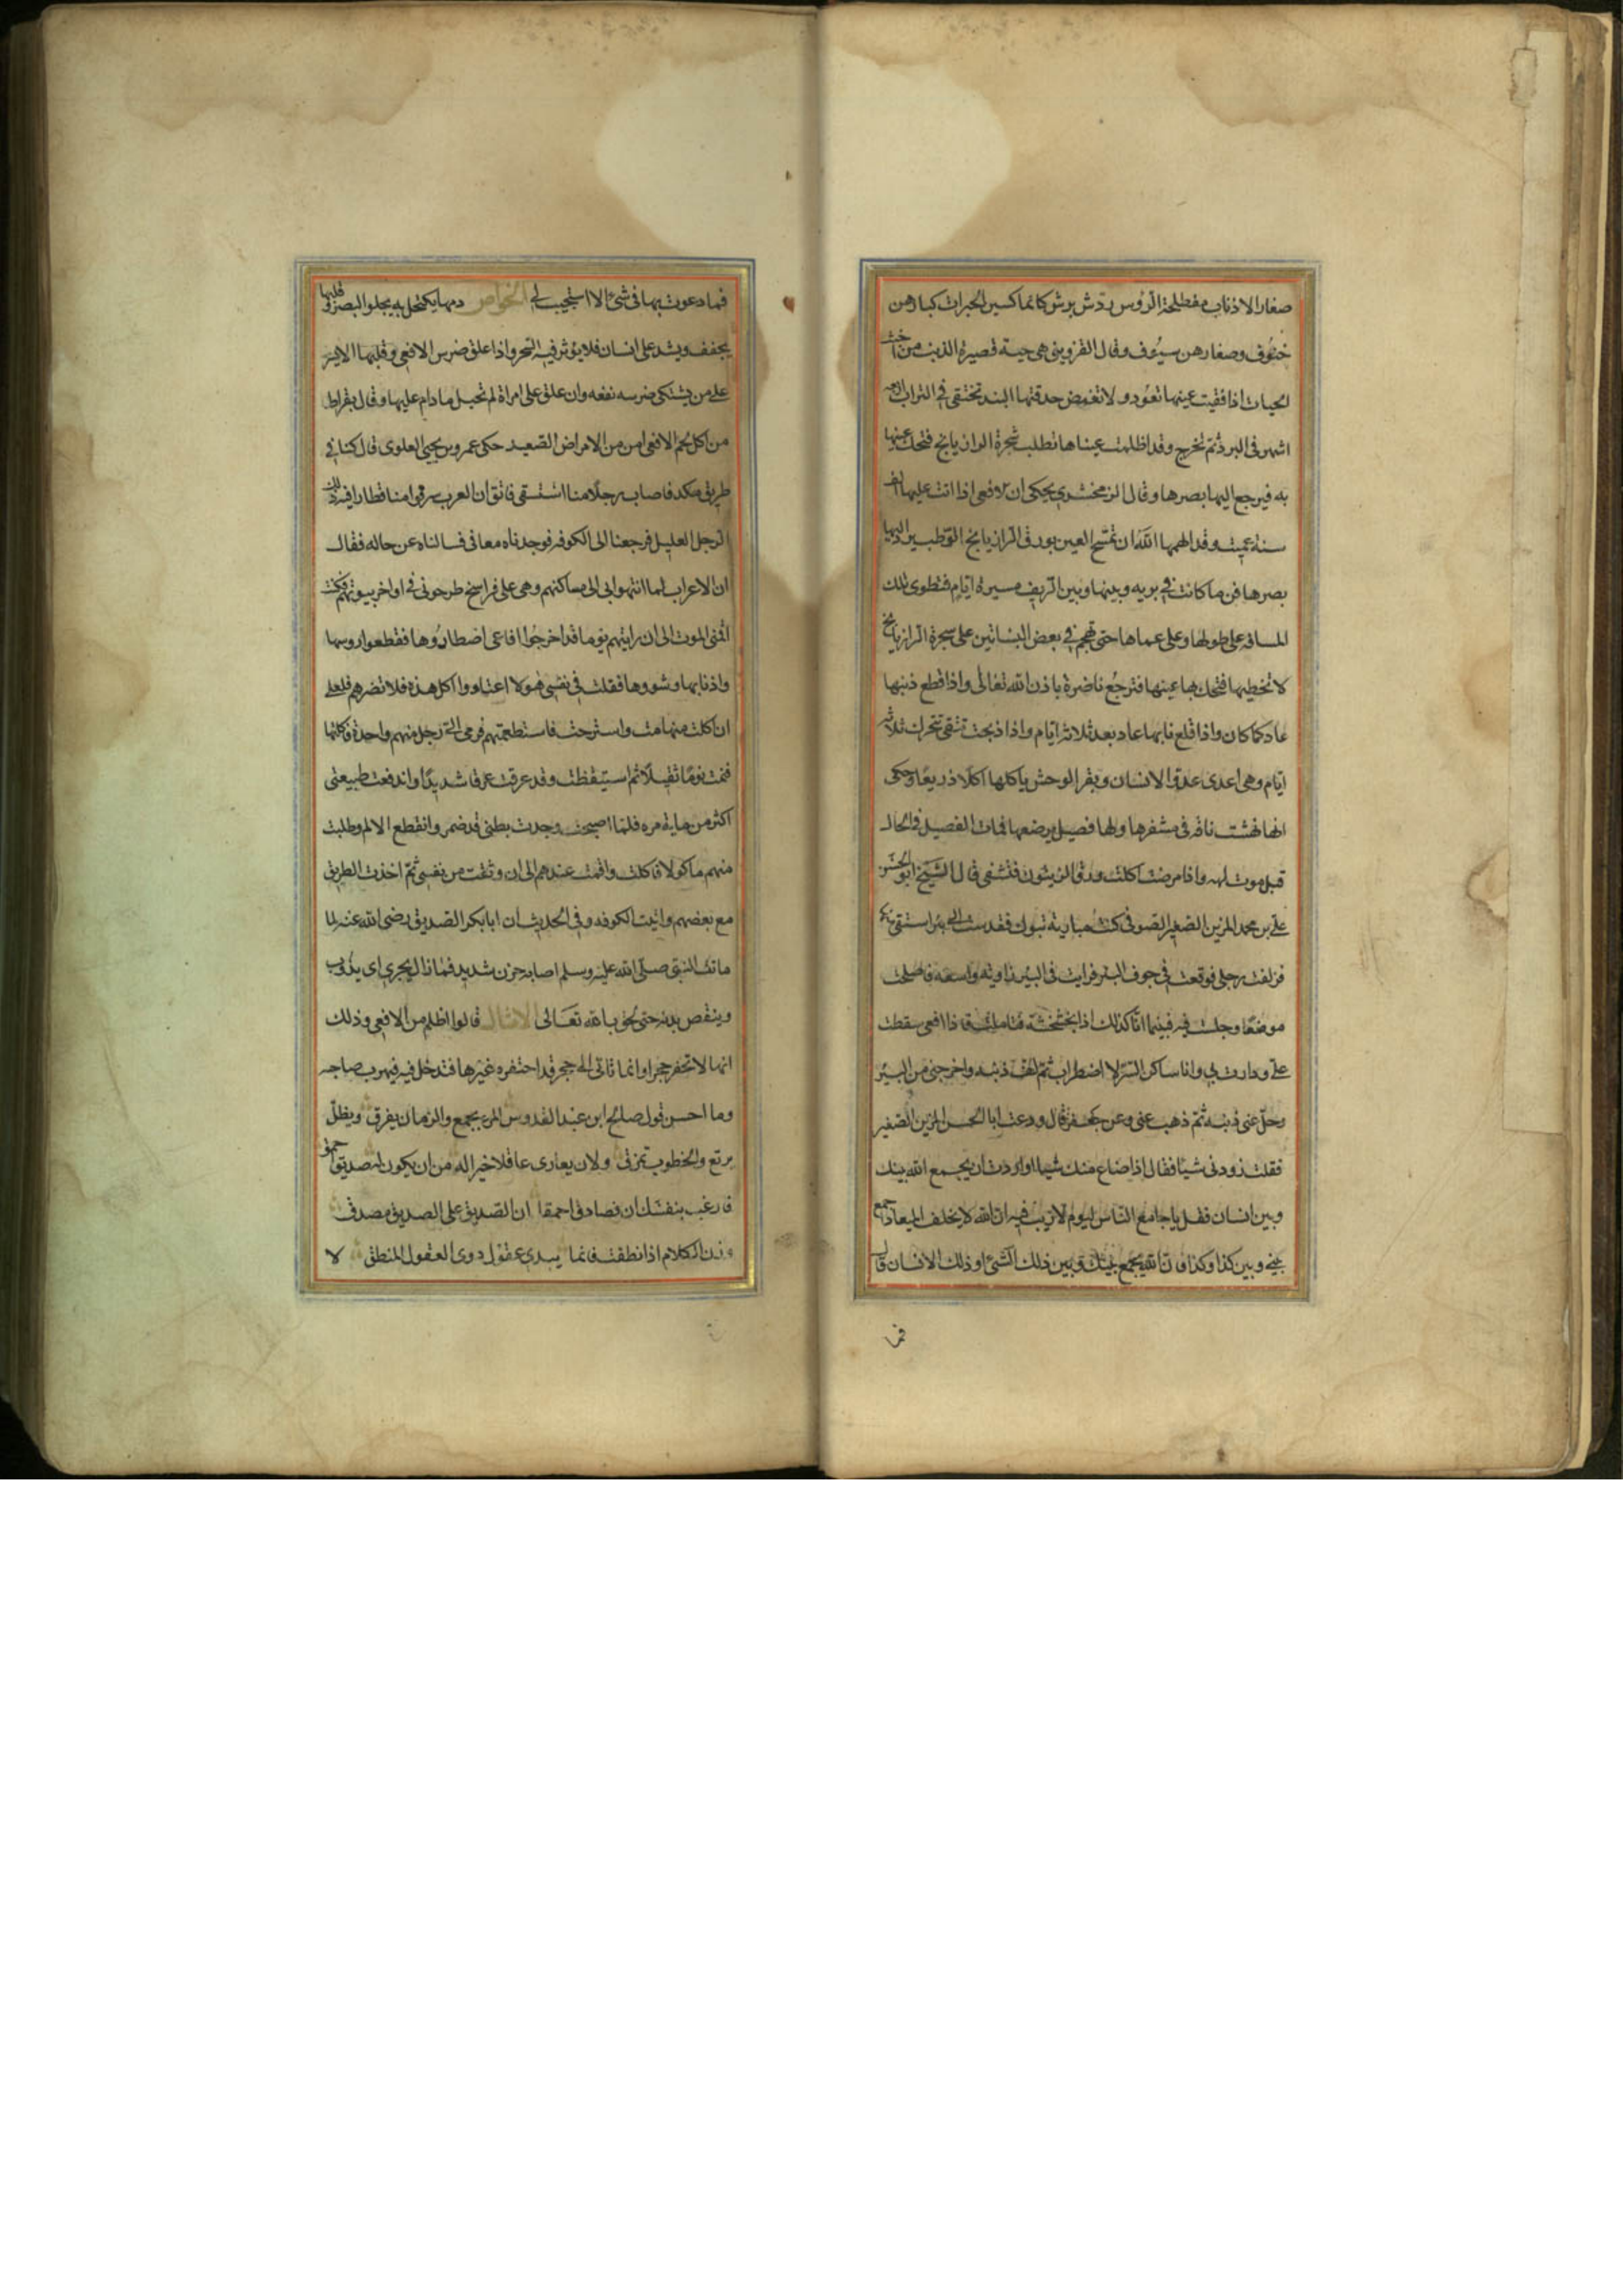 صغار الاذناب مفطلحة الرؤس رقش برش كانما كسين الحبرات كبارهن
خنوف وصغارهن سيوف وقال القزويني هي حية قصيرة الذنب من اخبث
الحيات اذا فقيت عينها تعود ولا تغمض حدقتها البتة تختفي في التراب اربعة
اشهر في البرد ثم تخرج وقد اظلمت عيناها تطلب شجرة الرازيانج فتحك عينها
به فيرجع اليها بصرها وقال الزمخشري يحكى ان الافعى اذا اتت عليها الف
سنة عميت وقد الهمها الله ان تمسح العين بورق الرازيانج الرطب يرد اليها
بصرها فربما كانت في برية وبينها وبين الريف مسيرة ايام فتطوى تلك
المسافة على طولها وعلى عماها حتى تهجم في بعض البساتين على شجرة الرازيانج
لا تخطيها فتحك بها عينها فترجع ناضرة باذن الله تعالى واذا قطع ذنبها
عاد كما كان واذا قلع نابها عاد بعد ثلاثة ايام واذا ذبحت تبقى تتحرك ثلاثة
ايام وهي اعدى عدو الانسان وبقر الوحش ياكلها اكلا ذريعا وحكى
انها نهشت ناقة في مشفرها ولها فصيل يرضعها فمات الفصيل في الحال
قبل موت امه واذا مرضت اكلت ورق الزيتون فتشفى قال الشيخ ابو الحسن
علي بن محمد المزين الصغير الصوفي كنت ببادية تبوك فقدمت الى بئر استقي منها
فزلقت رجلي فوقعت في جوف البئر فرايت في البير زاوية واسعة فاصلحت
موضعا وجلست فيه فبينما انا كذلك اذا بخشخشة فتاملت فاذا افعى سقطت
علي ودارت بي وانا ساكن السر لا اضطراب ثم لفت ذنبه واخرجني من البير
وحل عني ذنبه ثم ذهب عني وعن جعفر قال ودعت ابا الحسن المزين الصغير
فقلت زودني شيا فقال اذا ضاع منك شيا او اردت ان يجمع الله بينك
وبين انسان فقل يا جامع الناس ليوم لا ريب فيه ان الله لا يخلف الميعاد اجمع
بيني وبين كذا وكذا فان الله يجمع بينك وبين ذلك الشئ او ذلك الانسان قال
فما
فما دعوت بها في شئ الا استجيب لي الخواص دمها يكتحل به يجلو البصر وقلبها
يجفف ويشد على انسان فلا يؤثر فيه السحر واذا علق ضرس الافعى وقلبها الايسر
على من يشتكي ضرسه نفعه وان علق على امراة لم تحبل ما دام عليها وقال بقراط
من اكل لحم الافعى امن من الامراض الصعبة حكى عمرو بن يحيى العلوي قال كنا في
طريق مكة فاصاب رجلا منا استسقى فاتفق ان العرب سرقوا منا قطارا فيه ذلك
الرجل العليل فرجعنا الى الكوفة فوجدناه معافى فسالناه عن حاله فقال
ان الاعراب لما انتهوا بي الى مساكنهم وهي على فراسخ طرحوني في اواخر بيوتهم فكنت
اتمنى الموت الى ان رايتهم يوما قد اخرجوا افاعى اصطادوها فقطعوا روسها
واذنابها وشووها فقلت في نفسي هولا اعتادوا اكل هذه فلا تضرهم فلعلي
ان اكلت منها مت واسترحت فاستطعمتهم فرمى الي رجل منهم واحدة فاكلتها
فنمت نوما ثقيلا ثم استيقظت وقد عرقت عرقا شديدا واندفعت طبيعتي
اكثر من ماية مره فلما اصبحت وجدت بطني قد ضمر وانقطع الالم وطلبت
منهم ماكولا فاكلت واقمت عندهم الى ان وثقت من نفسي ثم اخذت الطريق
مع بعضهم واتيت الكوفة وفي الحديث ان ابا بكر الصديق رضي الله عنه لما
مات النبي صلى الله عليه وسلم اصابه حزن شديد فما زال يجري اي يذوب
وينقص بدنه حتى لحق بالله تعالى الامثال قالوا اظلم من الافعى وذلك
انها لا تحفر حجرا وانما تاتي الى حجر قد احتفره غيرها فتدخل فيه فيهرب صاحبه
وما احسن قول صالح ابن عبد القدوس المرء يجمع والزمان يفرق ويظل
يرقع والخطوب تمزق ولان يعادى عاقلا خير اله من ان يكون له صديق احمق
فارغب بنفسك ان تصادق احمقا ان الصديق على الصديق مصدق
وزن الكلام اذا نطقت فانما يبدي عقول ذوى العقول المنطق لا